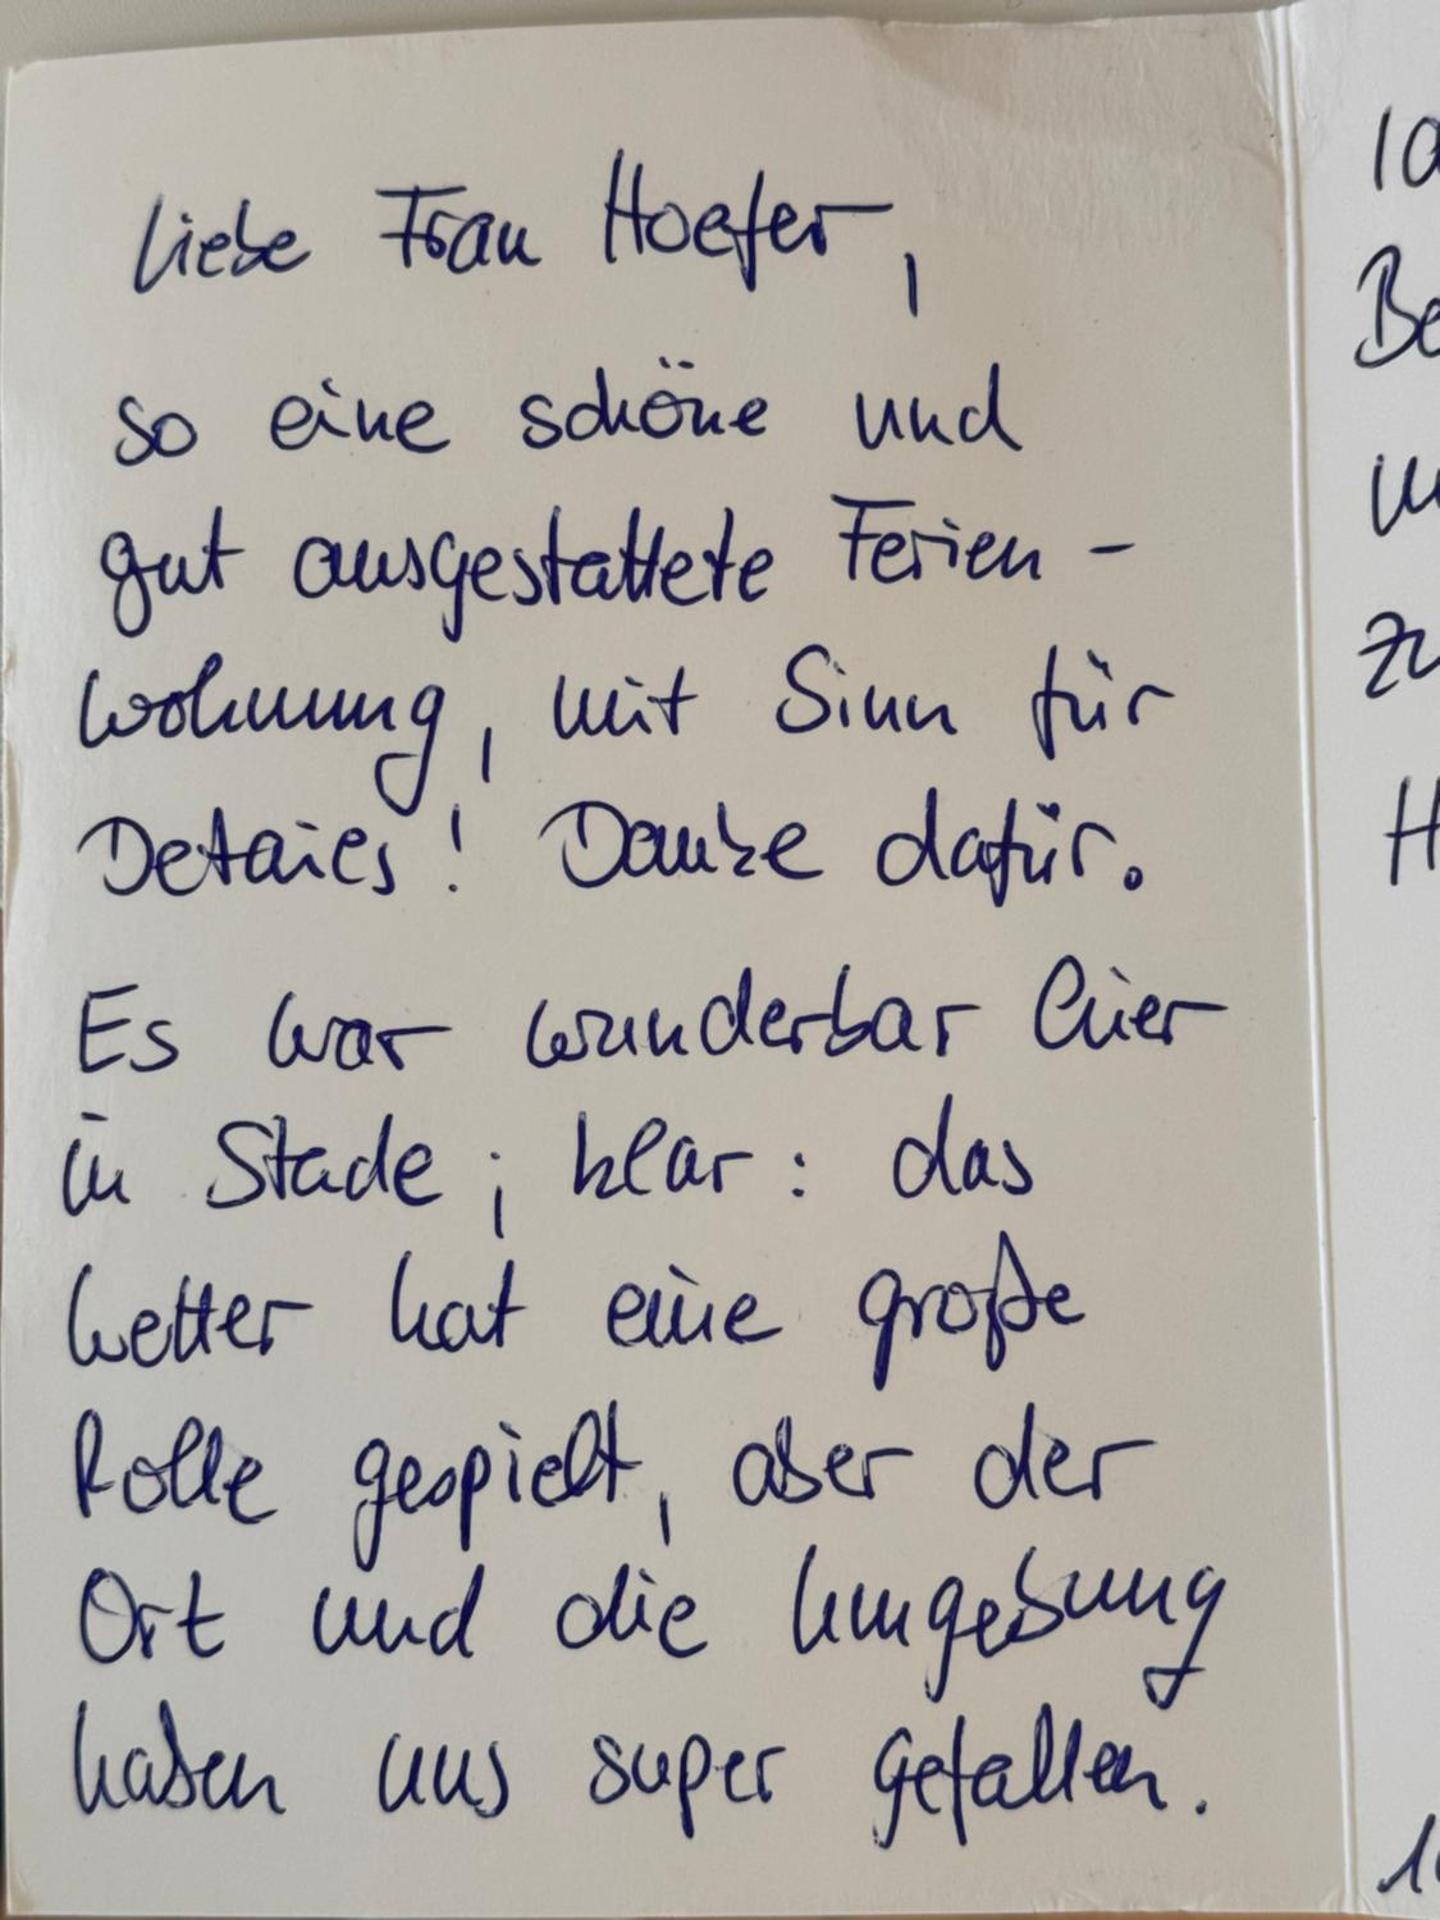 Liebe Frau Hoefer,
so eine schöne und
gut ausgestattete Ferien-
wohnung, mit Sinn für
Details! Danke dafür.
Es war wunderbar hier
in Stade; klar: das
Wetter hat eine große
Rolle gespielt, aber der
Ort und die Umgebung
haben uns super gefallen.